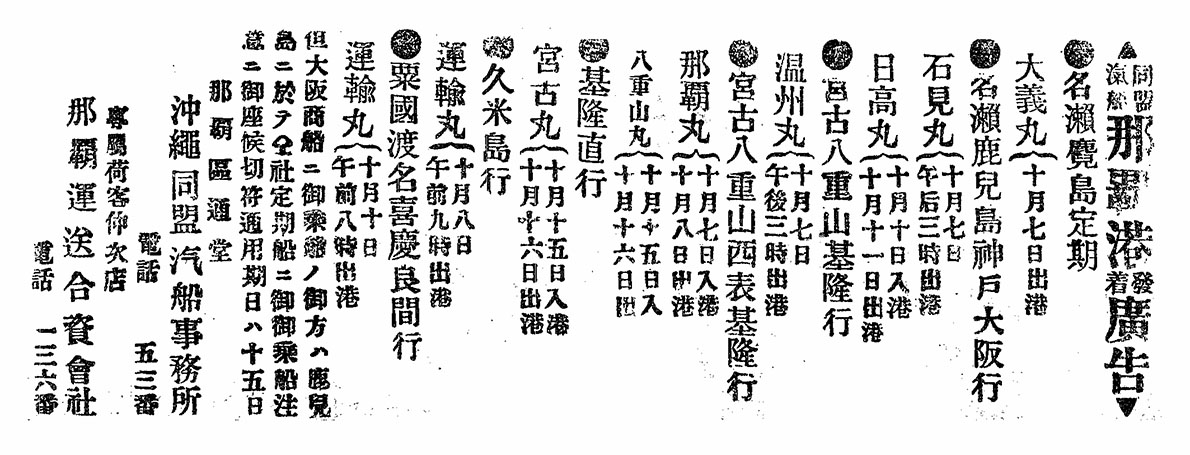 ▲同盟汽船那覇港発着廣告▼
●名瀬鹿島定期
大義丸{十月七日出港
●名瀬鹿兒島神戸大阪行
石見丸{十月七日午后三時出港
日高丸{十月十日入港十月十一日出港
●宮古八重山基隆行
温州丸{十月七日午後三時出港
●宮古八重山西表基隆行
那覇丸{十月七日入港十月八日出港
八重山丸{十月十五日入十月十六日出
●基隆直行
宮古丸{十月十五日入港十月十六日出港
●久米島行
運輸丸{十月八日午前九時出港
●粟國渡名喜慶良間行
運輸丸{十月十日午前八時出港
但大阪商船ニ御乗船ノ御方ハ鹿兒
島ニ於テ仝社定期船ニ御御乗船注
意ニ御座候切符通用期日ハ十五日
那覇區通堂
沖繩同盟汽船事務所
電話 五三番
專屬荷客仰次店
那覇運送合資會社
電話 一三六番